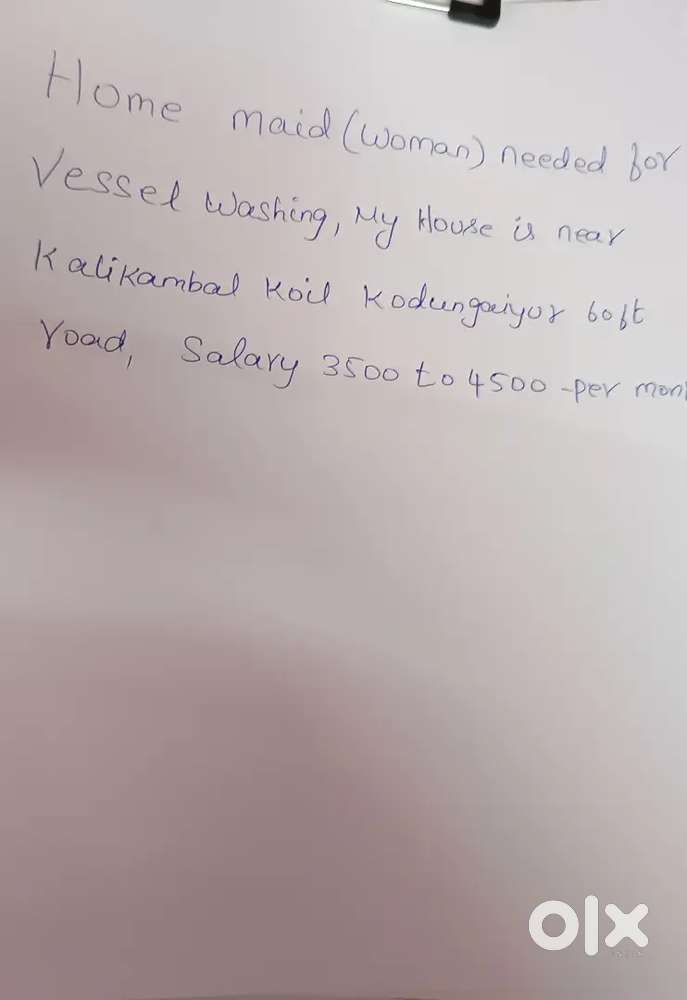 Home maid (woman) needed for
Vessel Washing, My House is near
Kalikambal Koil Kodungaiyur 60ft
road, Salary 3500 to 4500 -per mont
olx